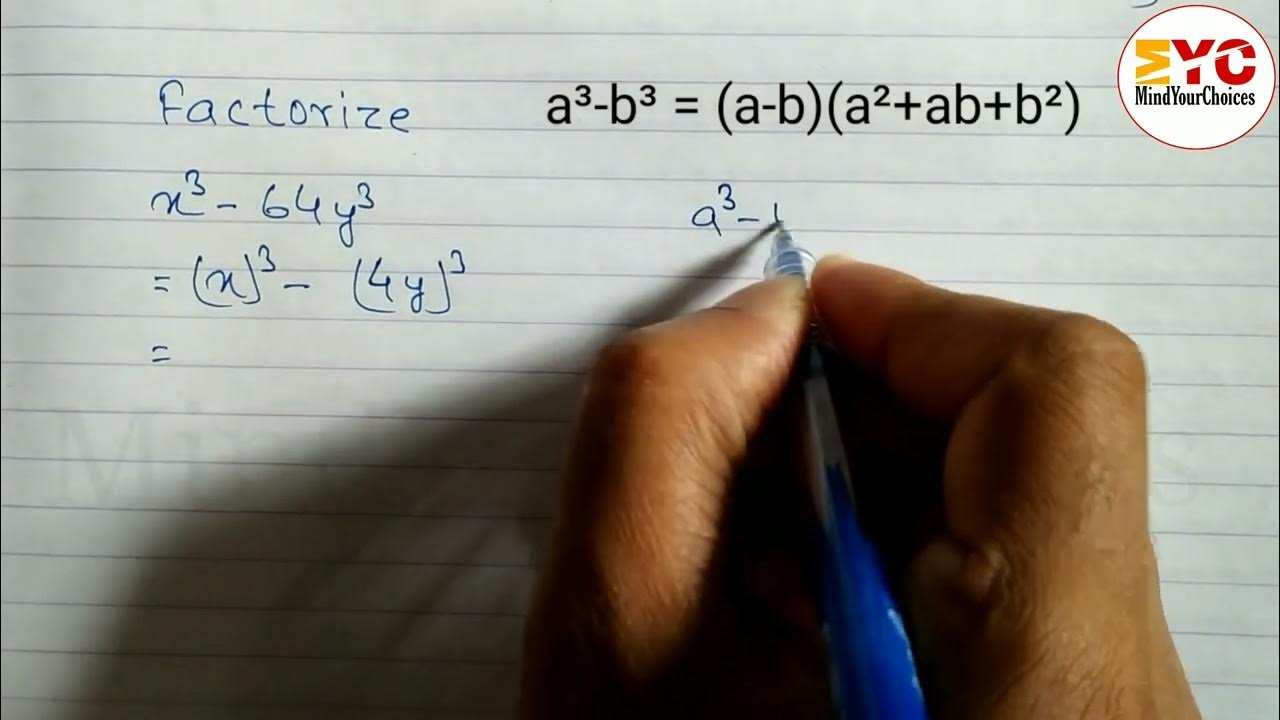 MYC
MindYourChoices
Factorize
a³-b³ = (a-b)(a²+ab+b²)
x³ - 64y³
a³ -
= (x)³ - (4y)³
=